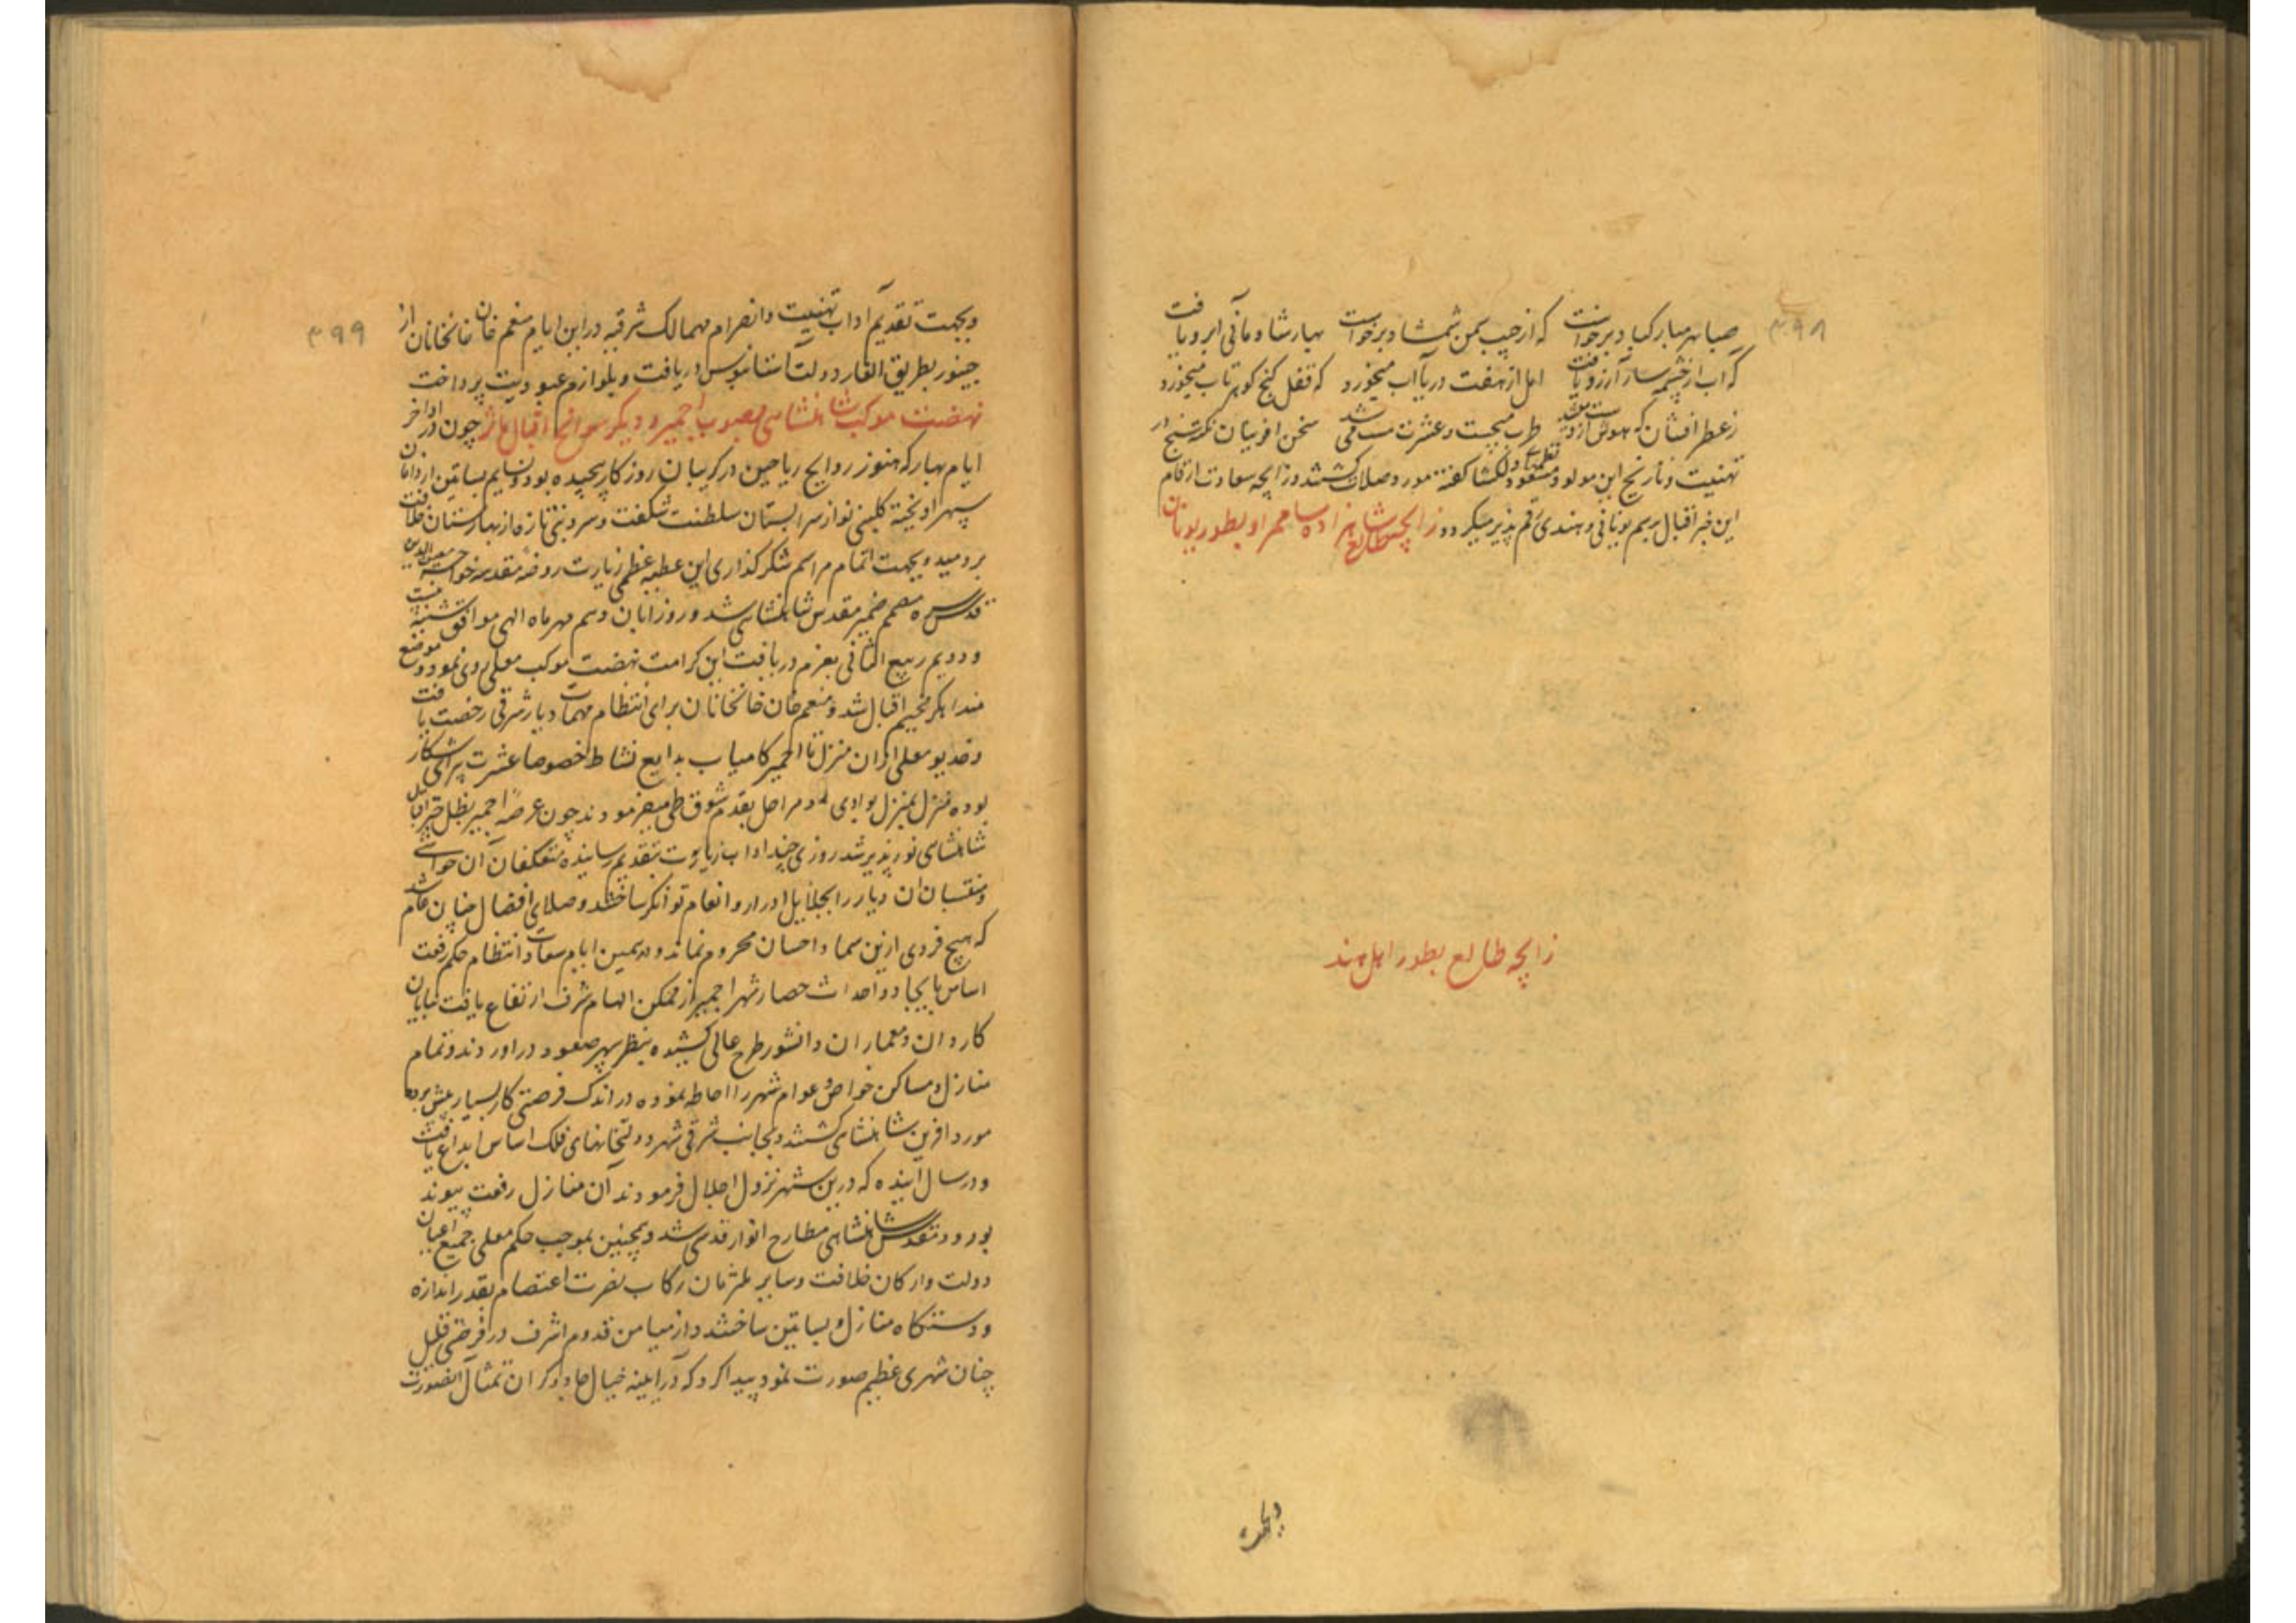 ۳۹۸
صبا بهر مبارکباد برخواست که از جیب سمن شمشاد برخواست بهار شادمانی ابرو یافت
که آب از چشمه سار آرزو یافت امل از هفت دریا آب میخورد که قفل گنج گوهر تاب میخورد
ز عطر افشان که هوش از طرب میجست و عشرت مست می شد سخن افرینان نکته سنج در
تهنیت و تاریخ این مولود مسعود نظمهای دلگشا گفته مورد صلات گشتند و زایچه سعادت ارقام
این خبر اقبال برسم یونانی و هندی رقم پذیر میگردد زایچه طالع شاهزاده شاه مراد بطور یونان
زایچه طالع بطور اهل هند
و بجهت
۳۹۹
و بجهت تقدیم آداب تهنیت و انصرام مهمام ممالک شرقیه در این ایام منعم خان خانخانان از
جینور بطریق ایلغار دولت آستانبوس دریافت و بلوازم عبودیت پرداخت
نهضت موکب شاهنشاهی بصوب اجمیر و دیگر سوانح اقبال مآثر چون در اواخر
ایام بهار که هنوز روایح ریاحین در گریبان روزگار پیچیده بود و نسایم بساتین از دامان
سپهر اویخته گلبنی نو از سرابستان سلطنت شگفت و سروبنی تازه از بهارستان خلافت
بردمید و بجهت اتمام مراسم شکرگذاری این عطیه عظمی زیارت روضه مقدسه خواجه معین الدین
قدس سره مصمم ضمیر مقدس شاهنشاهی شد و روز ابان دهم مهرماه الهی موافق شنبه بیست
و دویم ربیع الثانی بعزم دریافت این کرامت نهضت موکب معلی روی نمود و موضع
منداکر مخیم اقبال شد و منعم خان خانخانان برای انتظام مهمات دیار شرقی رخصت یافت
و خدیو معلی ازان منزل تا اجمیر کامیاب بدایع نشاط خصوصا عشرت پیرای شکار
بوده منزل بمنزل بوادی و مراحل بقدم شوق طی میفرمودند چون عرصه اجمیر بظل چتر اقبال
شاهنشاهی نورپذیر شد روزی چند اداب زیارت بتقدیم رسانیده معتکفان آن حواشی
و منتسبان ان دیار را بجلایل ادرار و انعام توانگر ساختند و صلای افضال چنان عام شد
که هیچ فردی ازین سماد احسان محروم نماند و در همین ایام سعادت انتظام حکم رفعت
اساس بایجاد و احداث حصار شهر اجمیر از ممکن الهام شرف ارتفاع یافت بنایان
کاردان و معماران دانشور طرح عالی کشیده بنظر سپهر صعود در اوردند و تمام
منازل و مساکن خواص و عوام شهر را احاطه نموده در اندک فرصتی کار بسیار پیش برده
مورد افرین شاهنشاهی گشتند و بجانب شرقی شهر دولتخانهای فلک اساس ابداع یافت
و در سال آینده که درین شهر نزول اجلال فرمودند آن منازل رفعت پیوند
بورود مقدس شاهنشاهی مطارح انوار قدسی شد و همچنین بموجب حکم معلی جمیع اعیان
دولت و ارکان خلافت و سایر ملتزمان رکاب نصرت اعتصام بقدر اندازه
و دستگاه منازل و بساتین ساختند و از میامن قدوم اشرف در فرصتی قلیل
چنان شهری عظیم صورت نمود پیدا کرد که در آیینه خیال جادوگران تمثال آنصورت